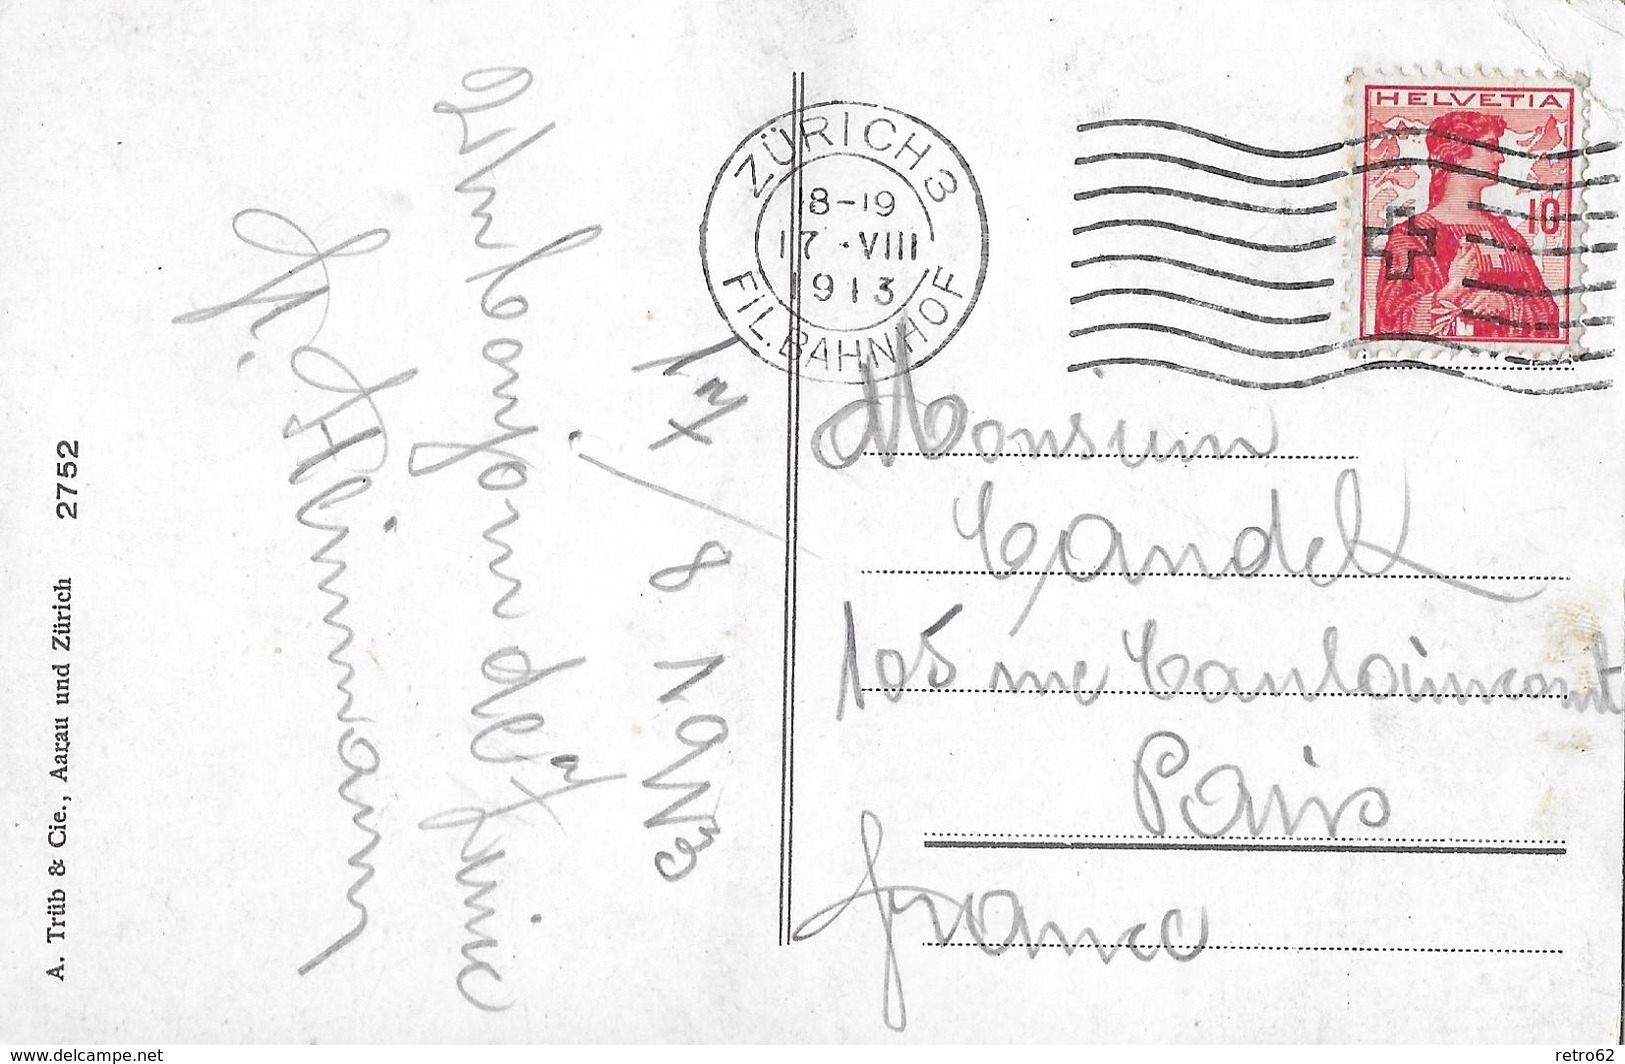 HELVETIA
10
ZÜRICH 3
18-19
17.VIII
1913
FIL. BAHNHOF
Monsieur
Candel
105 rue Caulaincourt
Paris
France
17/8 1913
Un bonjour de
A. Trüb & Cie., Aarau und Zürich 2752
www.delcampe.net
retro62